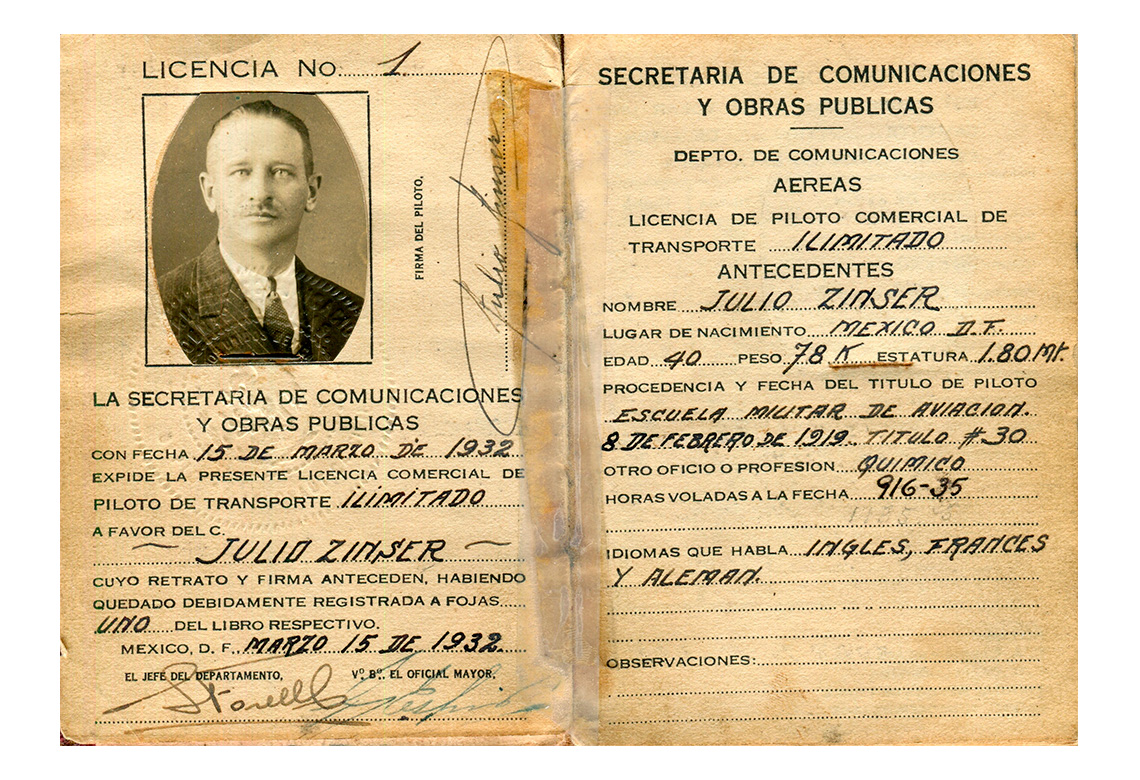 LICENCIA No. 1
FIRMA DEL PILOTO.
Julio Zinser
LA SECRETARIA DE COMUNICACIONES
Y OBRAS PUBLICAS
CON FECHA 15 DE MARZO DE 1932
EXPIDE LA PRESENTE LICENCIA COMERCIAL DE
PILOTO DE TRANSPORTE ILIMITADO
A FAVOR DEL C.
JULIO ZINSER
CUYO RETRATO Y FIRMA ANTECEDEN, HABIENDO
QUEDADO DEBIDAMENTE REGISTRADA A FOJAS
UNO DEL LIBRO RESPECTIVO.
MEXICO, D. F., MARZO 15 DE 1932.
EL JEFE DEL DEPARTAMENTO, Vº Bº. EL OFICIAL MAYOR,
SECRETARIA DE COMUNICACIONES
Y OBRAS PUBLICAS
DEPTO. DE COMUNICACIONES
AEREAS
LICENCIA DE PILOTO COMERCIAL DE
TRANSPORTE ILIMITADO
ANTECEDENTES
NOMBRE JULIO ZINSER
LUGAR DE NACIMIENTO MEXICO D.F.
EDAD 40 PESO 78 K ESTATURA 1.80 Mt.
PROCEDENCIA Y FECHA DEL TITULO DE PILOTO
ESCUELA MILITAR DE AVIACION.
8 DE FEBRERO DE 1919. TITULO # 30
OTRO OFICIO O PROFESION QUIMICO
HORAS VOLADAS A LA FECHA 916-35
IDIOMAS QUE HABLA INGLES, FRANCES
Y ALEMAN.
OBSERVACIONES: